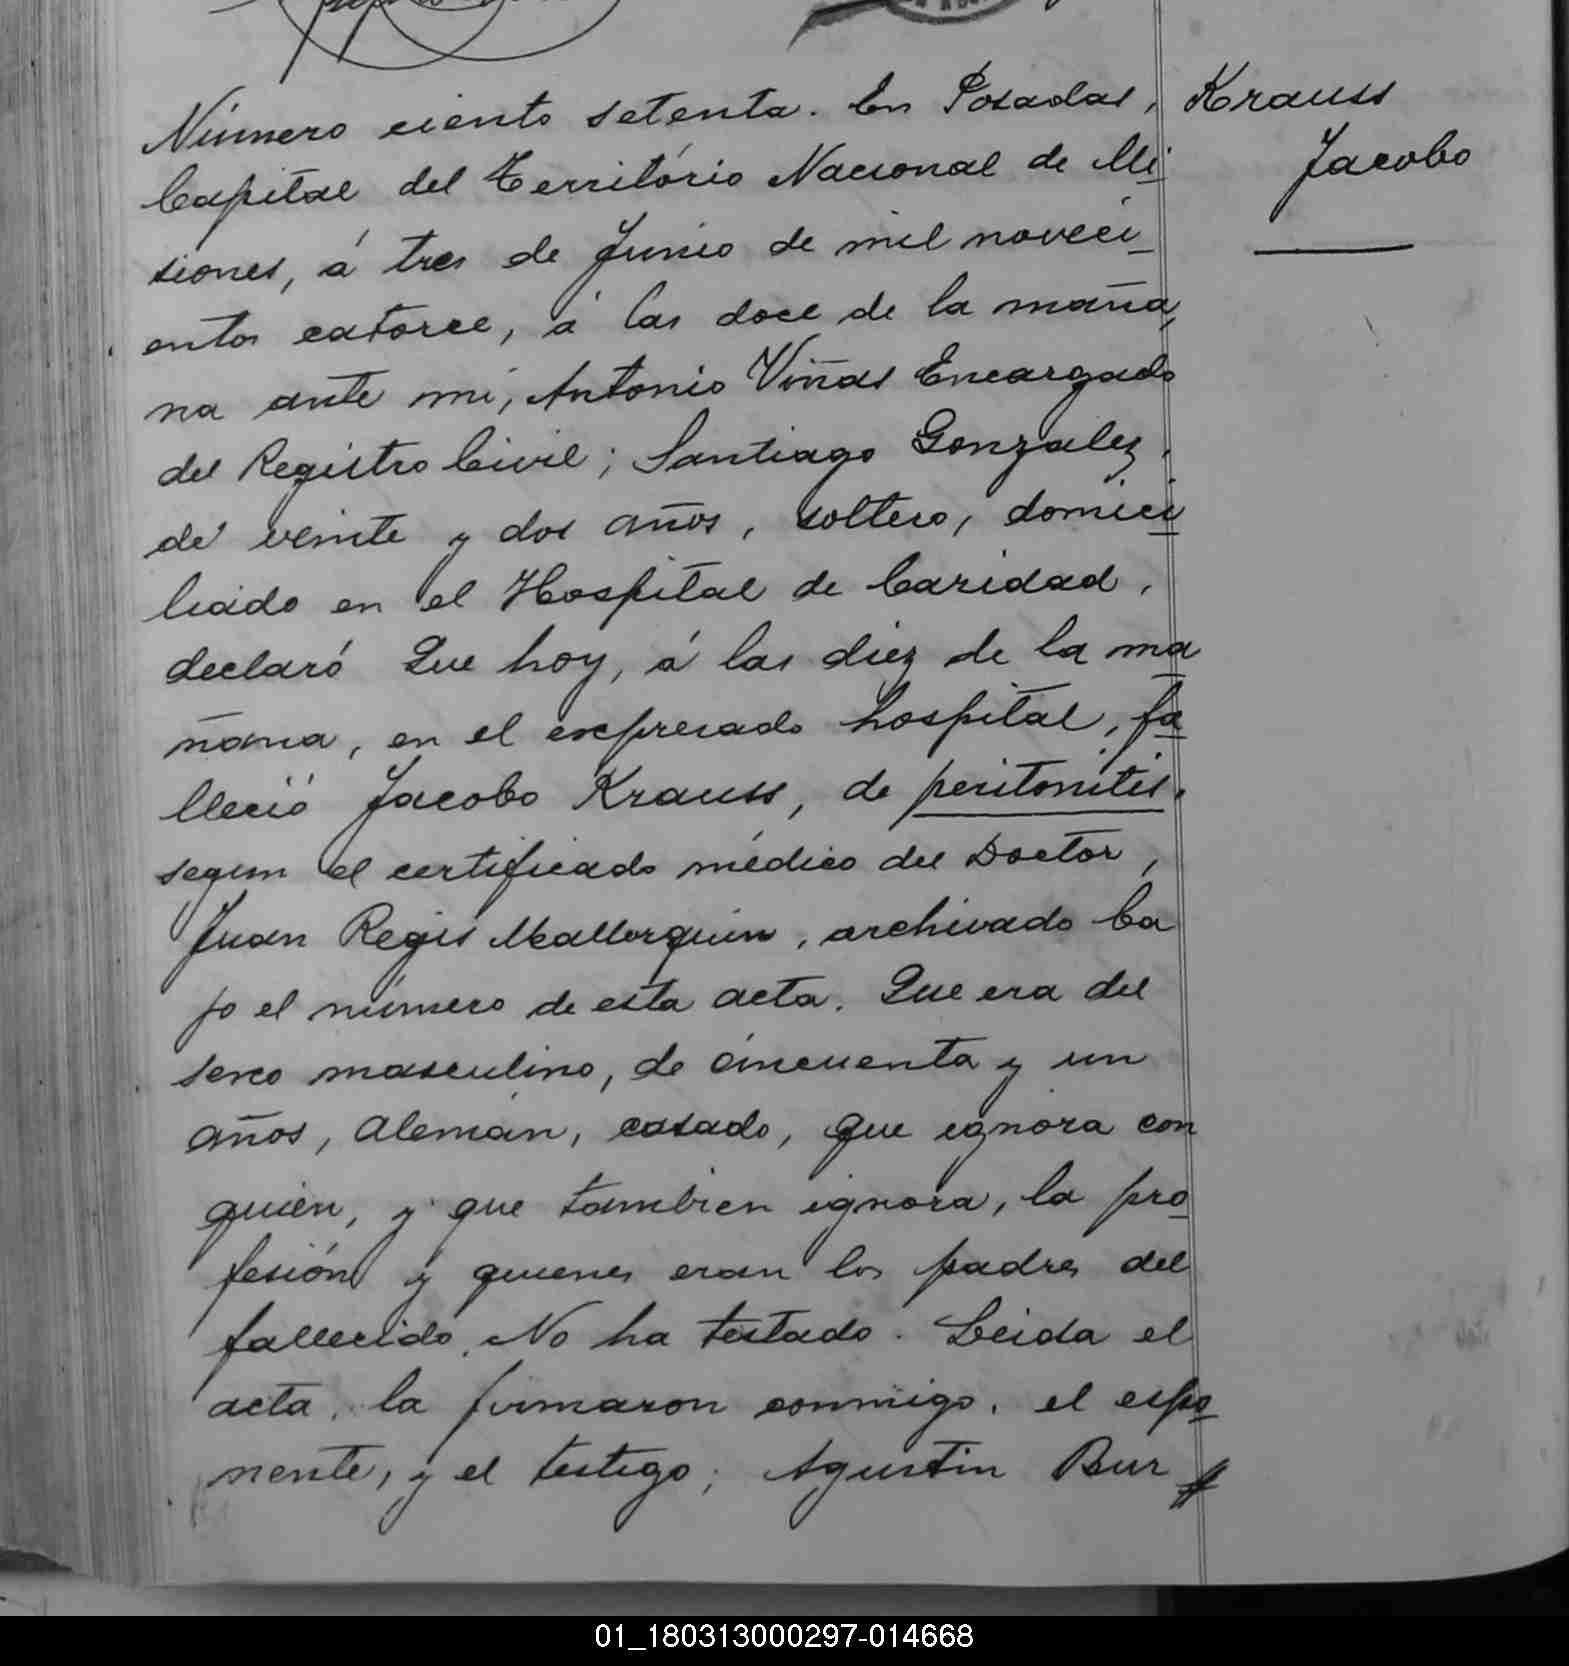 Número ciento setenta. En Posadas,
Krauss
Jacobo
Capital del Território Nacional de Mi
siones, á tres de Junio de mil noveci
entos catorce, á las doce de la maña
na ante mi, Antonio Viñas Encargado
del Registro Civil; Santiago Gonzalez,
de veinte y dos años, soltero, domici
liado en el Hospital de Caridad,
declaró Que hoy, á las diez de la ma
ñana, en el expresado hospital, fa
lleció Jacobo Krauss, de peritonitis,
segun el certificado médico del Doctor,
Juan Regis Mallorquin, archivado ba
jo el número de esta acta. Que era del
sexo masculino, de cincuenta y un
años, Alemán, casado, que ignora con
quién, y que tambien ignora, la pro
fesión y quienes eran los padres del
fallecido. No ha testado. Leida el
acta, la firmaron conmigo, el expo
nente, y el testigo; Agustin Bur
01_180313000297-014668